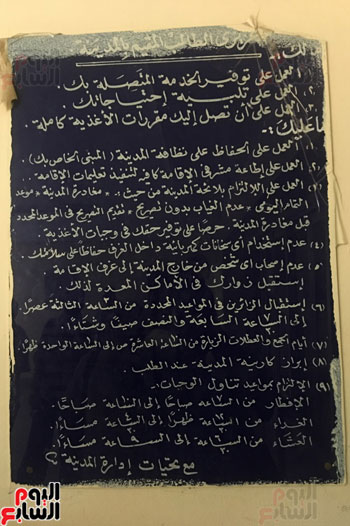 عزيزى الطالب المقيم بالمدينة
١. العمل على توفير الخدمة المتصلة بك.
٢. العمل على تلبية إحتياجاتك.
٣. العمل على أن تصل إليك مقررات الأغذية كاملة.
ما عليك:-
١. العمل على الحفاظ على نظافة المدينة (المبنى الخاص بك).
٢. العمل على إطاعة مشرفى الإقامة كافة لتنفيذ تعليمات الإقامة.
(٣) العمل على الإلتزام بلائحة المدينة من حيث:. مغادرة المدينة * موعد
التمام اليومى * عدم الغياب بدون تصريح * تقديم التصريح فى الموعد المحدد
قبل مغادرة المدينة. حرصًا على توفير حقك فى وجبات الأغذية.
(٤) عدم إستخدام أى سخانات كهربائية داخل الغرف حفاظًا على سلامتك.
(٥) عدم إصحاب أى شخص من خارج المدينة إلى غرف الإقامة
إستقبل زوارك فى الأماكن المعدة لذلك.
(٦) إستقبال الزائرين فى المواعيد المحددة من الساعة الثالثة عصرًا.
إلى الساعة السابعة والنصف صيفًا وشتاءًا.
(٧) أيام الجمع والعطلات الزيارة من الساعة العاشرة ص إلى الساعة الواحدة ظهرًا.
(٨) إبراز كارنية المدينة عند الطلب.
(٩) الإلتزام بمواعيد تناول الوجبات.
الإفطار من الساعة صباحًا إلى الساعة صباحًا.
الغداء من الساعة ظهرًا إلى الساعة مساءًا.
العشاء من الساعة مساءًا إلى الساعة مساءًا.
مع تحيات إدارة المدينة
اليوم السابع